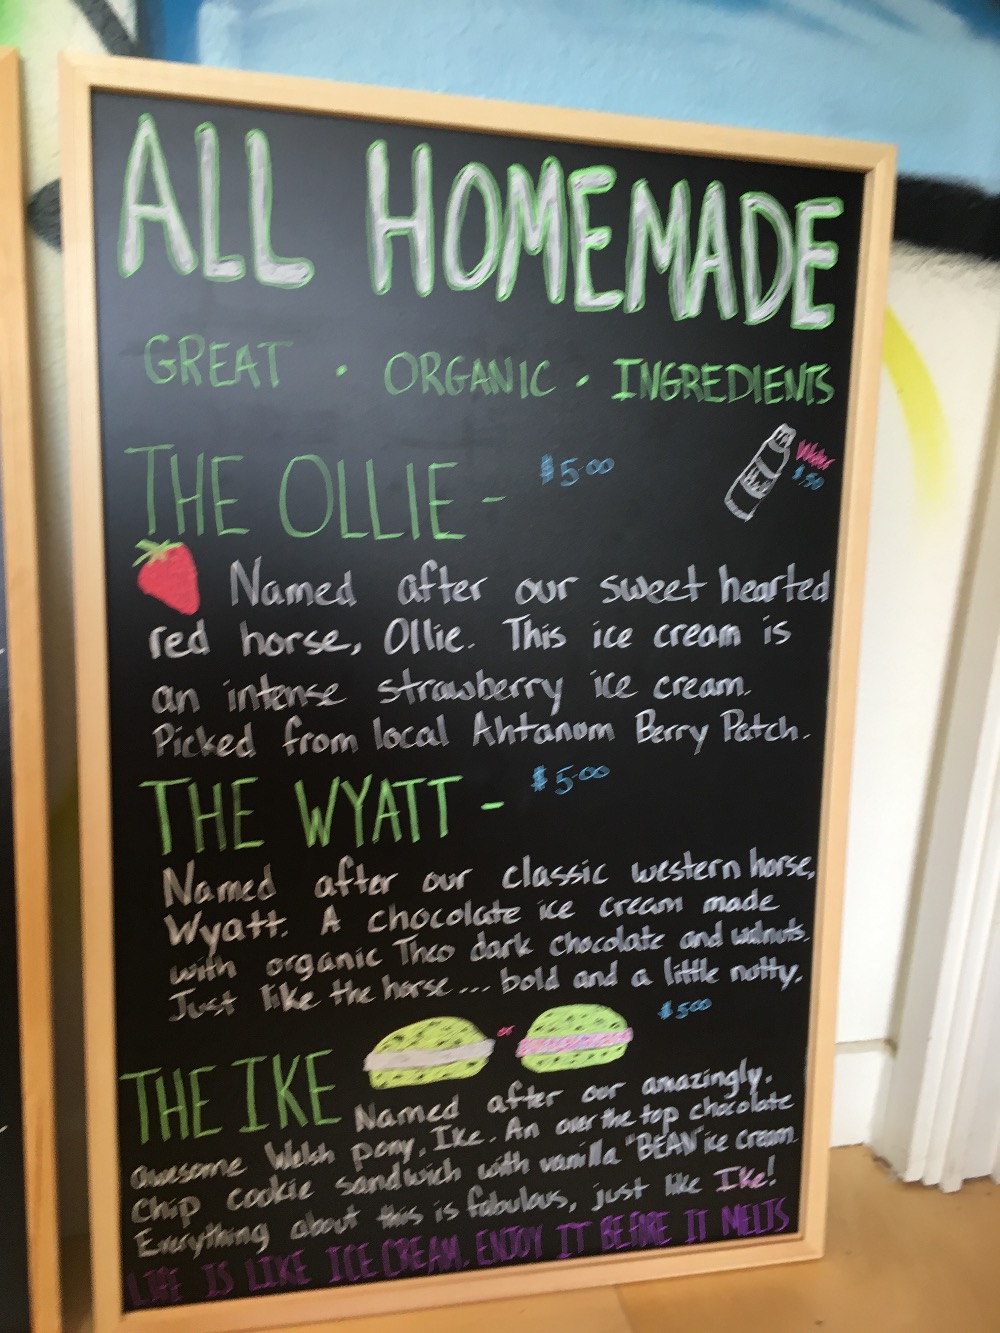 ALL HOMEMADE
GREAT · ORGANIC · INGREDIENTS
THE OLLIE - $5.00
Water
$.50
Named after our sweet hearted
red horse, Ollie. This ice cream is
an intense strawberry ice cream.
Picked from local Ahtanum Berry Patch.
THE WYATT - $5.00
Named after our classic western horse,
Wyatt. A chocolate ice cream made
with organic Theo dark chocolate and walnuts.
Just like the horse... bold and a little nutty.
or
$5.00
THE IKE Named after our amazingly
awesome Welsh pony, Ike. An over the top chocolate
chip cookie sandwich with vanilla "BEAN" ice cream.
Everything about this is fabulous, just like Ike!
LIFE IS LIKE ICE CREAM, ENJOY IT BEFORE IT MELTS